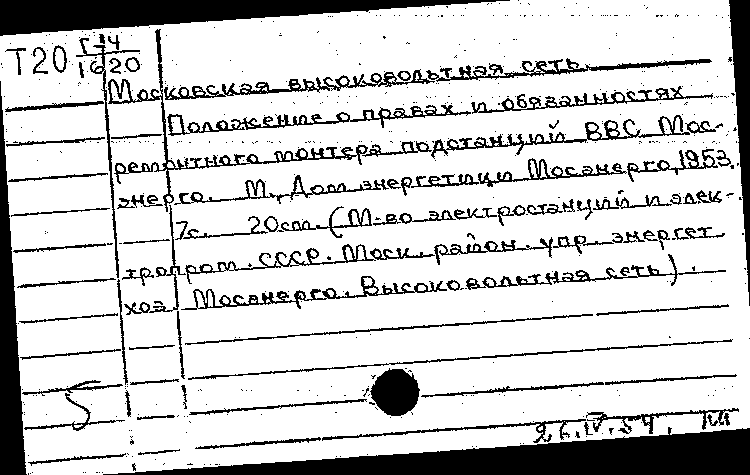 Т20 Г-14
1620
Московская высоковольтная сеть.
Положение о правах и обязанностях
ремонтного монтера подстанций ВВС Мос-
энерго. М., Дом энергетики Мосэнерго, 1953.
7с. 20см. (М-во электростанций и элек-
тропром. СССР. Моск. район. упр. энергет.
хоз. Мосэнерго. Высоковольтная сеть).
5
26.IV.54.